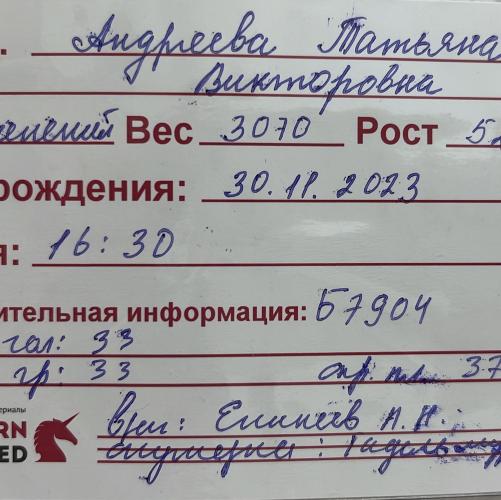 . Андреева Татьяна
Викторовна
Вес 3070 Рост 52
рождения: 30.11.2023
я: 16:30
ительная информация: Б7904
гол: 33
гр: 33 окр. пл. 37
ериалы
RN
ED
врач: Еникеев А.Н.
акушерка: